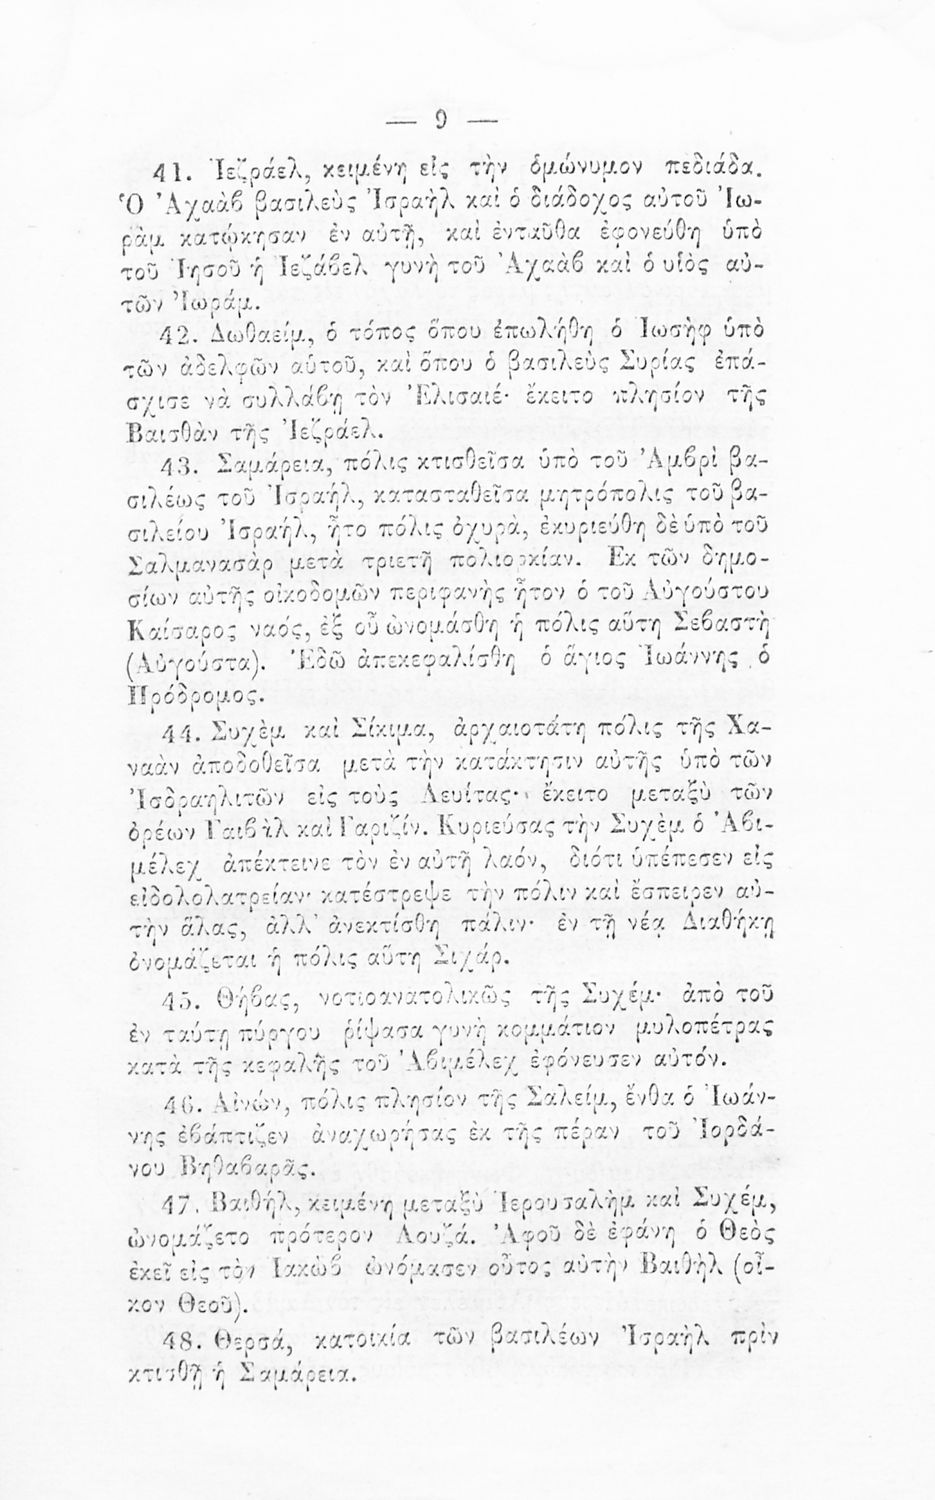 — 9 —
41. Ἰεζράελ, κειμένη εἰς τὴν ὁμώνυμον πεδιάδα.
Ὁ Ἀχαὰβ βασιλεὺς Ἰσραὴλ καὶ ὁ διάδοχος αὐτοῦ Ἰω-
ρὰμ κατῴκησαν ἐν αὐτῇ, καὶ ἐνταῦθα ἐφονεύθη ὑπὸ
τοῦ Ἰησοῦ ἡ Ἰεζάβελ γυνὴ τοῦ Ἀχαὰβ καὶ ὁ υἱὸς αὐ-
τῶν Ἰωράμ.
42. Δωθαείμ, ὁ τόπος ὅπου ἐπωλήθη ὁ Ἰωσὴφ ὑπὸ
τῶν ἀδελφῶν αὑτοῦ, καὶ ὅπου ὁ βασιλεὺς Συρίας ἐπά-
σχισε νὰ συλλάβῃ τὸν Ἐλισαιέ· ἔκειτο πλησίον τῆς
Βαισθὰν τῆς Ἰεζράελ.
43. Σαμάρεια, πόλις κτισθεῖσα ὑπὸ τοῦ Ἀμβρὶ βα-
σιλέως τοῦ Ἰσραήλ, κατασταθεῖσα μητρόπολις τοῦ βα-
σιλείου Ἰσραήλ, ἦτο πόλις ὀχυρά, ἐκυριεύθη δὲ ὑπὸ τοῦ
Σαλμανασὰρ μετὰ τριετῆ πολιορκίαν. Ἐκ τῶν δημο-
σίων αὐτῆς οἰκοδομῶν περιφανὴς ἦτον ὁ τοῦ Αὐγούστου
Καίσαρος ναός, ἐξ οὗ ὠνομάσθη ἡ πόλις αὕτη Σεβαστὴ
(Αὐγούστα). Ἐδῶ ἀπεκεφαλίσθη ὁ ἅγιος Ἰωάννης ὁ
Πρόδρομος.
44. Συχὲμ καὶ Σίκιμα, ἀρχαιοτάτη πόλις τῆς Χα-
ναὰν ἀποδοθεῖσα μετὰ τὴν κατάκτησιν αὐτῆς ὑπὸ τῶν
Ἰσδραηλιτῶν εἰς τοὺς Λευίτας· ἔκειτο μεταξὺ τῶν
ὀρέων Γαιβὰλ καὶ Γαριζίν. Κυριεύσας τὴν Συχὲμ ὁ Ἀβι-
μέλεχ ἀπέκτεινε τὸν ἐν αὐτῇ λαόν, διότι ὑπέπεσεν εἰς
εἰδολολατρείαν· κατέστρεψε τὴν πόλιν καὶ ἔσπειρεν αὐ-
τὴν ἅλας, ἀλλ' ἀνεκτίσθη πάλιν· ἐν τῇ νέᾳ Διαθήκῃ
ὀνομάζεται ἡ πόλις αὕτη Σιχάρ.
45. Θήβας, νοτιοανατολικῶς τῆς Συχέμ· ἀπὸ τοῦ
ἐν ταύτῃ πύργου ῥίψασα γυνὴ κομμάτιον μυλοπέτρας
κατὰ τῆς κεφαλῆς τοῦ Ἀβιμέλεχ ἐφόνευσεν αὐτόν.
46. Αἰνών, πόλις πλησίον τῆς Σαλείμ, ἔνθα ὁ Ἰωάν-
νης ἐβάπτιζεν ἀναχωρήσας ἐκ τῆς πέραν τοῦ Ἰορδά-
νου Βηθαβαρᾶς.
47. Βαιθήλ, κειμένη μεταξὺ Ἰερουσαλὴμ καὶ Συχέμ,
ὠνομάζετο πρότερον Λουζά. Ἀφοῦ δὲ ἐφάνη ὁ Θεὸς
ἐκεῖ εἰς τὸν Ἰακὼβ ὠνόμασεν οὗτος αὐτὴν Βαιθὴλ (οἶ-
κον Θεοῦ).
48. Θερσά, κατοικία τῶν βασιλέων Ἰσραὴλ πρὶν
κτισθῇ ἡ Σαμάρεια.